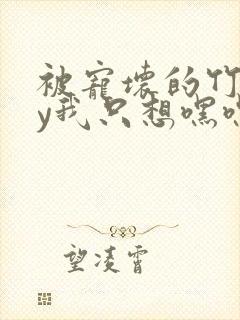 被寵壞的竹
y我只想嘿
望凌霄